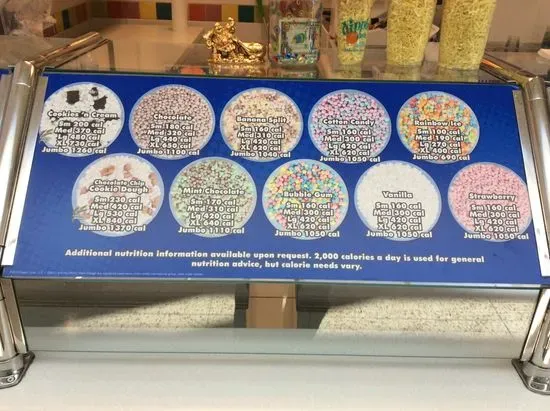 Cookies 'n Cream
Sm 200 cal
Med 370 cal
Lg 480 cal
XL 730 cal
Jumbo 1260 cal
Chocolate
Sm 180 cal
Med 320 cal
Lg cal
XL 650 cal
Jumbo 1100 cal
Banana Split
Sm 160 cal
Med cal
Lg 420 cal
XL 620 cal
Jumbo 1040 cal
Cotton Candy
Sm 160 cal
Med 300 cal
Lg 420 cal
XL 620 cal
Jumbo 1050 cal
Rainbow Ice
Sm 100 cal
Med 190 cal
Lg 270 cal
XL 400 cal
Jumbo 690 cal
Chocolate Chip
Cookie Dough
Sm 230 cal
Med 420 cal
Lg 530 cal
XL 840 cal
Jumbo 1370 cal
Mint Chocolate
Sm 170 cal
Med 310 cal
Lg 420 cal
XL 640 cal
Jumbo 1110 cal
Bubble Gum
Sm 160 cal
Med 300 cal
Lg 420 cal
XL 620 cal
Jumbo 1050 cal
Vanilla
Sm 160 cal
Med 300 cal
Lg 420 cal
XL 620 cal
Jumbo 1050 cal
Strawberry
Sm 160 cal
Med 300 cal
Lg 420 cal
XL 620 cal
Jumbo 1050 cal
Additional nutrition information available upon request. 2,000 calories a day is used for general
nutrition advice, but calorie needs vary.